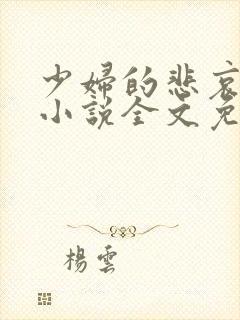 少婦的悲哀
小說全文免
楊雲